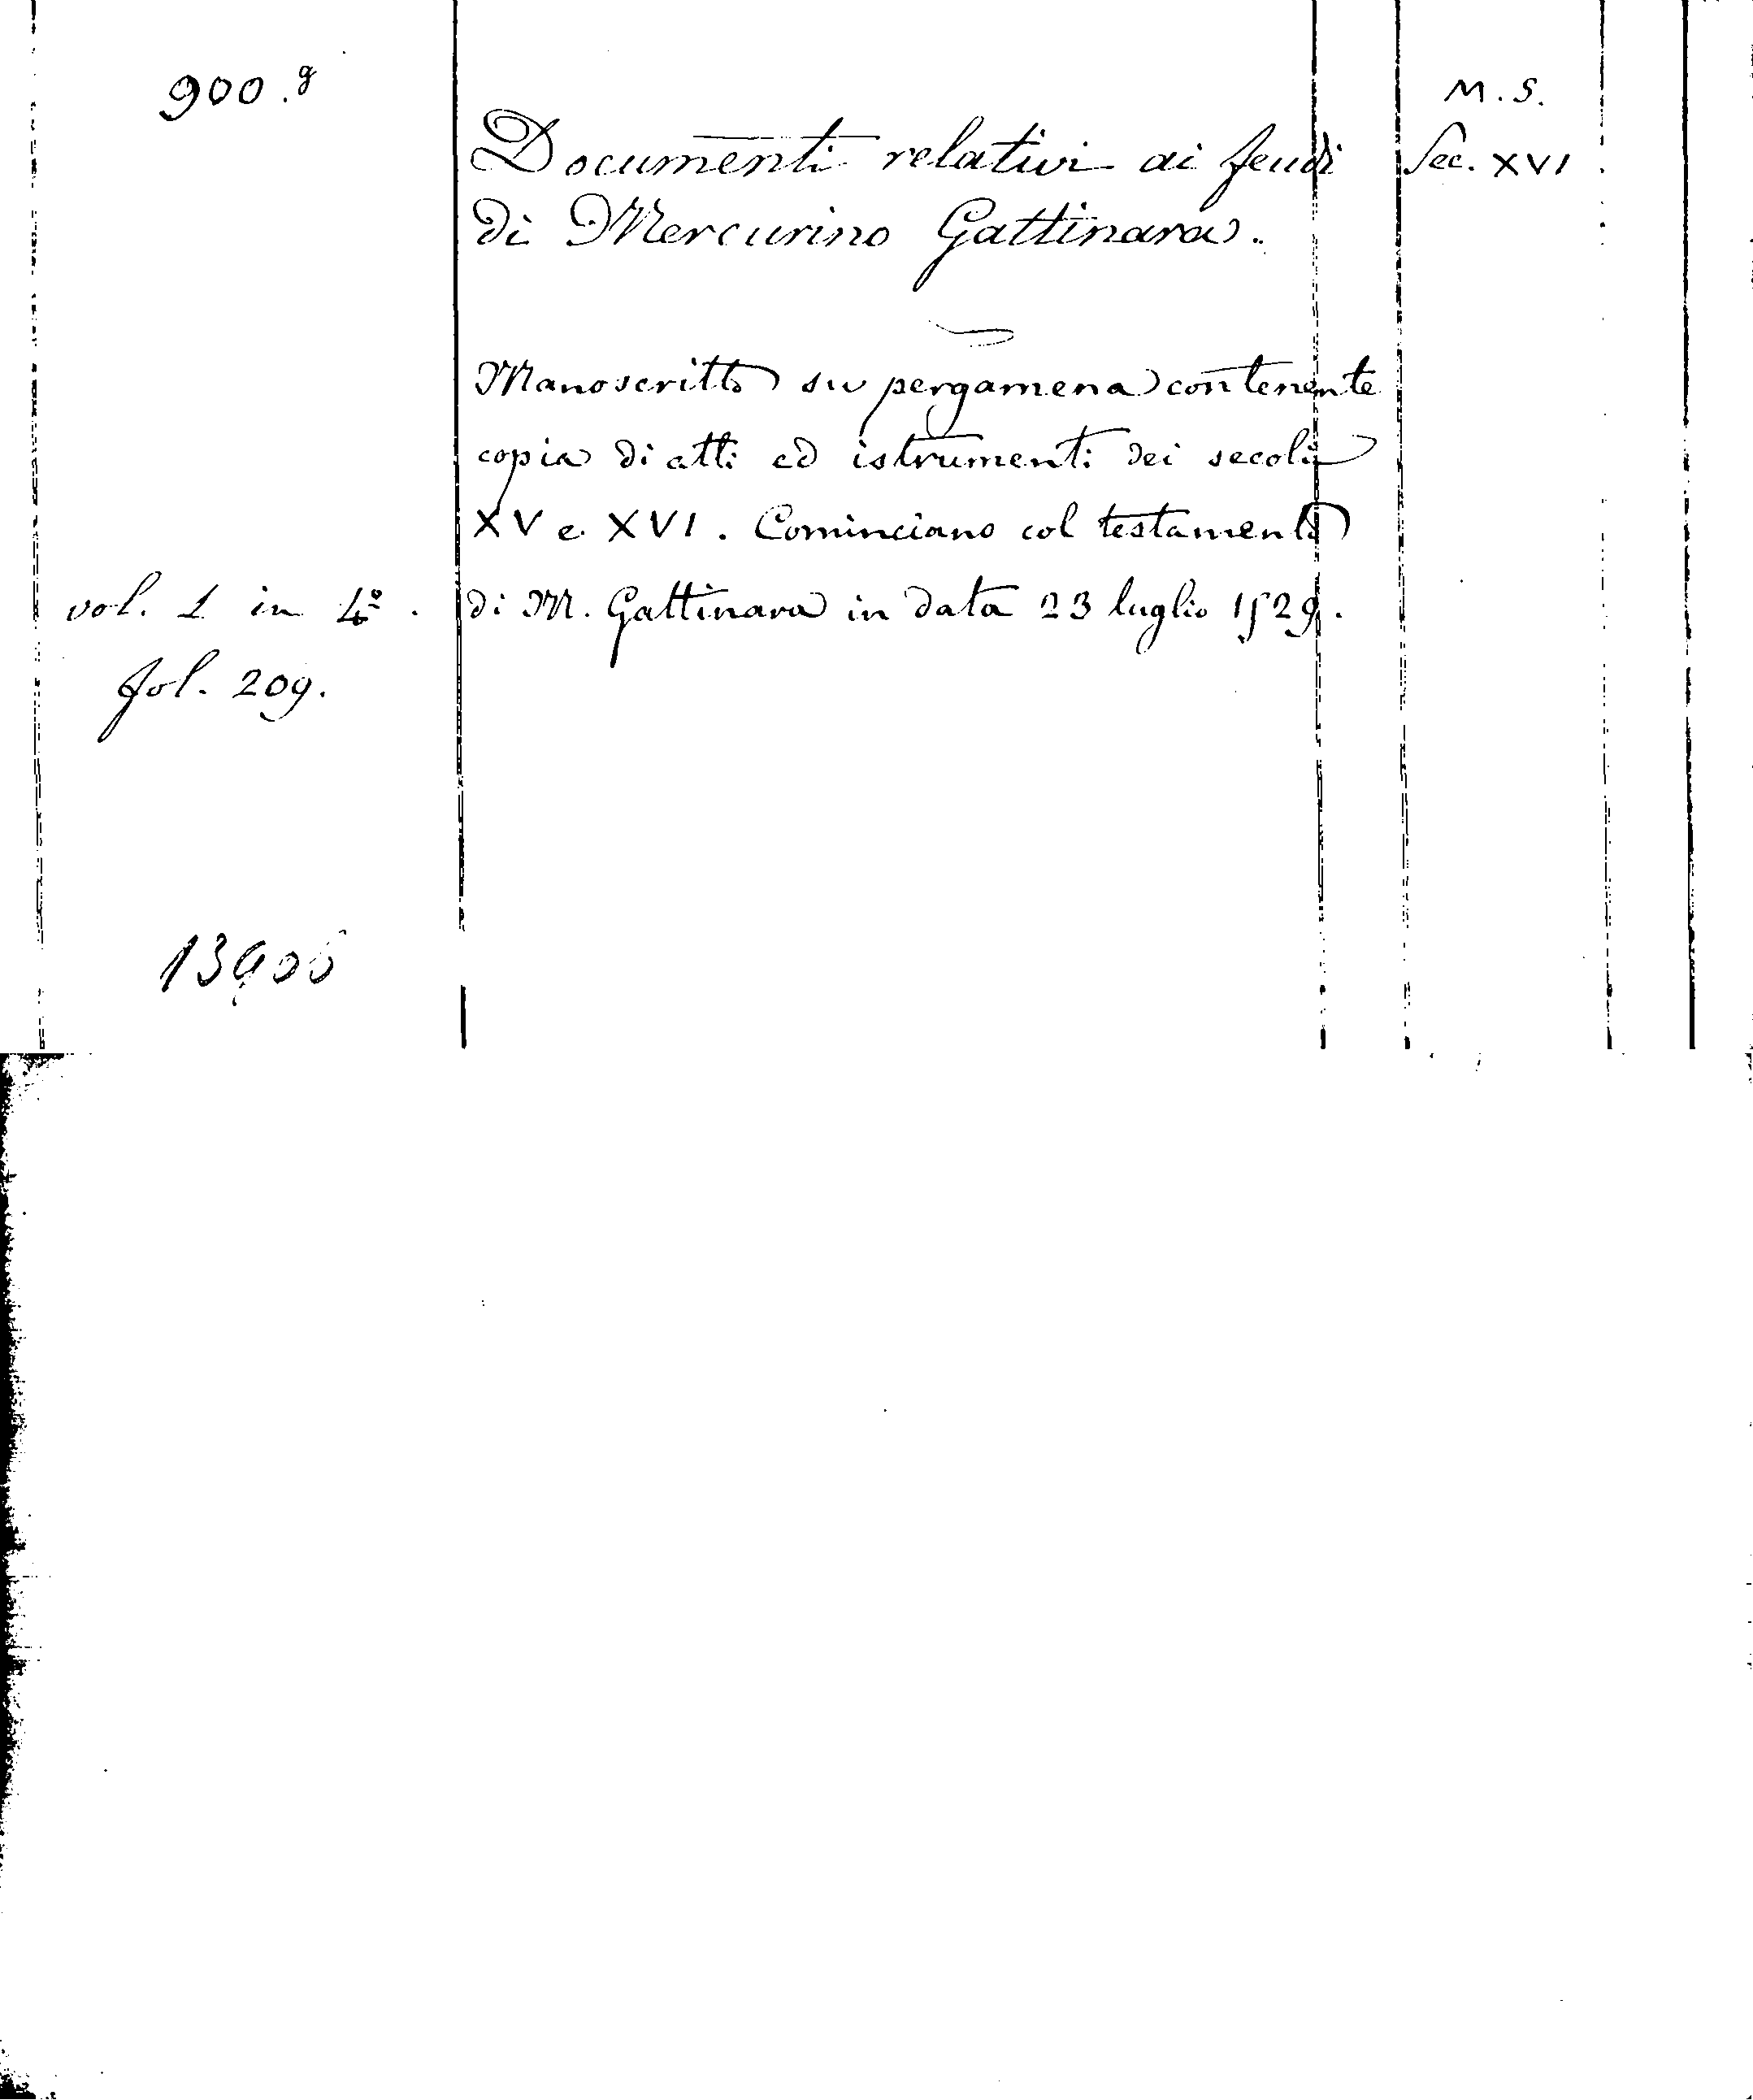 900.g
M.S.
Documenti relativi ai feudi
Sec. XVI
di Mercurino Gattinara.
Manoscritto su pergamena contenente
copia di atti ed istrumenti dei secoli
XV e XVI. Cominciano col testamento
vol. 1 in 4º.
di M. Gattinara in data 23 luglio 1529.
fol. 209.